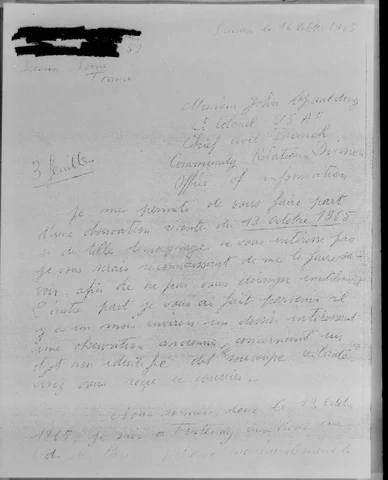 le 16 octobre 1965
France
3 feuilles
Monsieur John Spaulding
Lt Colonel USAF
Chief Civil Branch
Community Relations Division
Office of information
Je me permets de vous faire part
d'une observation récente du 13 octobre 1965
si de telle témoignage ne vous intéresse pas
je vous serais reconnaissant de me le faire sa-
voir afin de ne pas vous déranger inutilement
D'autre part je vous ai fait parvenir il
y a un mois environ un dossier intéressant
une observation ancienne concernant un
objet non identifié dit soucoupe volante
avez vous reçu ce courrier..
Nous sommes donc le 13 octobre
1965, je suis à Fontenay aux Roses